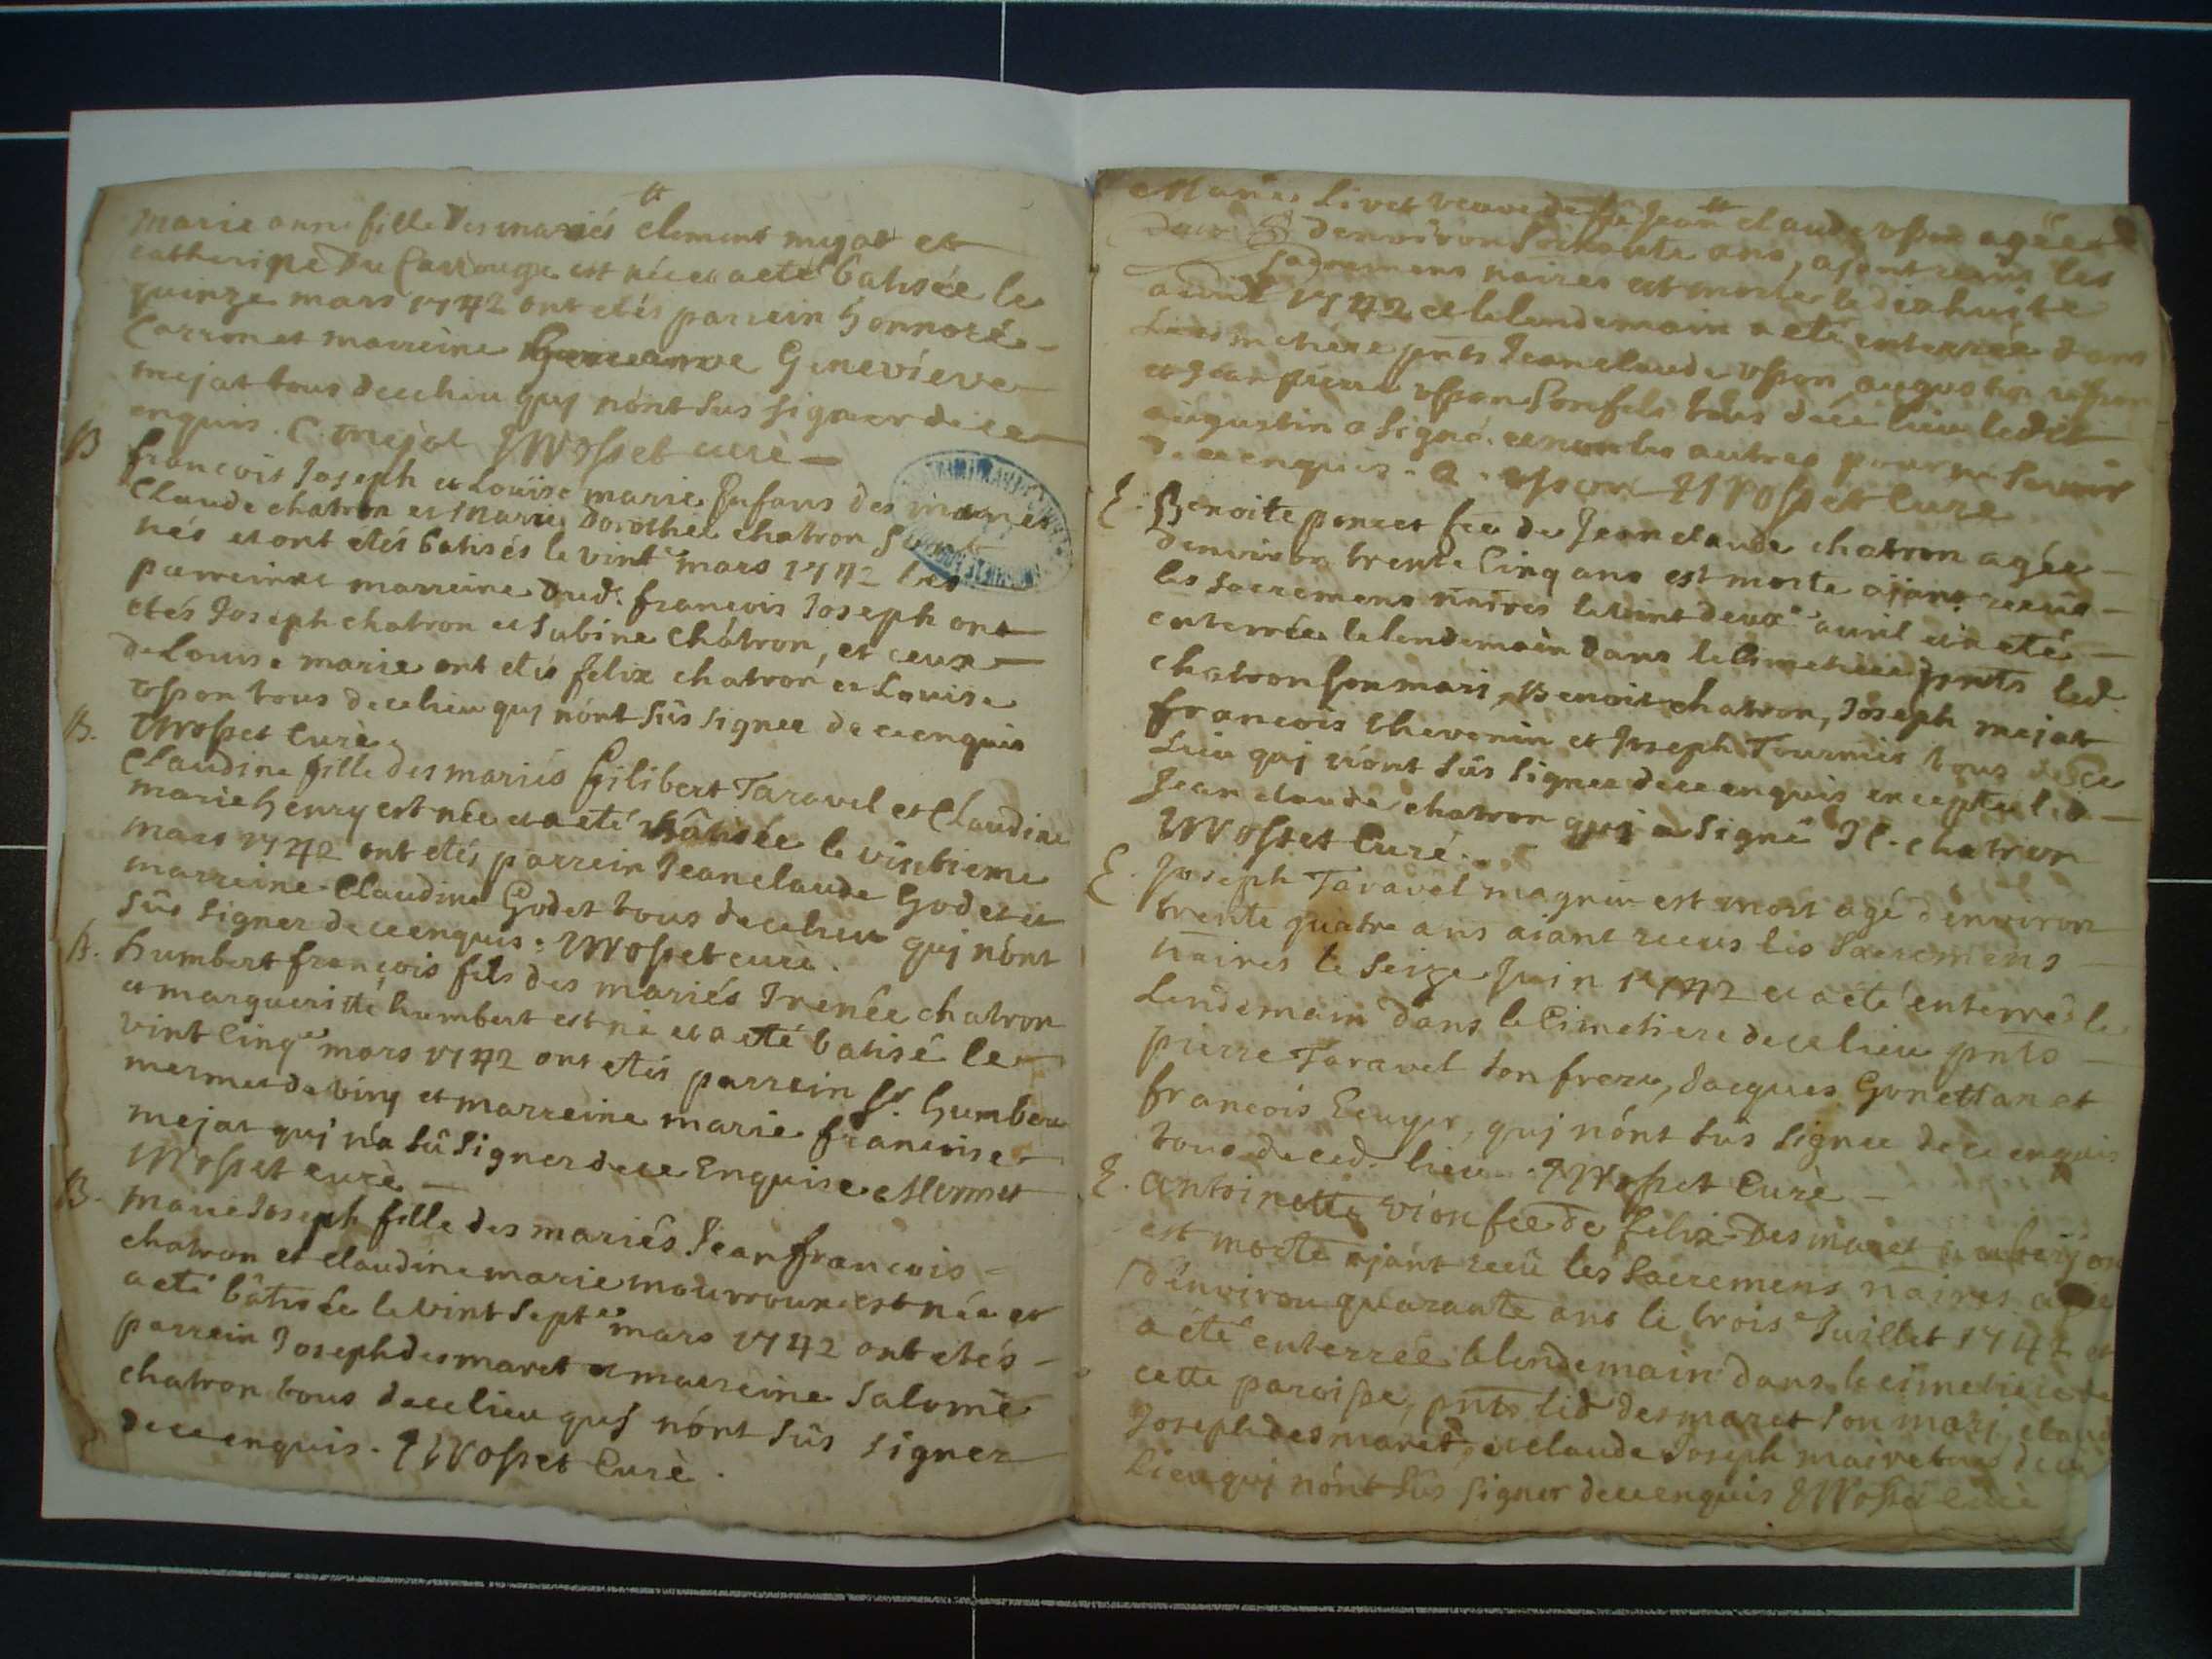 Marie anne fille des mariés clement mejat et
catherine Du Carrouge est née et a eté batisée le
quinze mars 1742 ont etés parrein honnoré
Carron et marreine Genevieve
mejat tous de ce lieu quj n'ont sus signer de ce
enquis. C. mejat JMosset curè
B françois Joseph et Louise marie Enfans des mariés
Claude chatron et Marie Dorothee chatron sont
nés et ont étés batisés le vint mars 1742 les
parrein et marreine dud. françois Joseph ont
etés Joseph chatron et Sabine Chatron, et ceux
de Louise marie ont etés felix chatron et Louise
tous de ce lieu quj n'ont sûs signer de ce enquis
B. JMosset Curè.
Claudine fille des mariés Gilibert Taravel et Claudine
marie henry est née et a eté bâtisée le vintieme
mars 1742 ont etés parrein Jean claude Godet et
marreine Claudine Godet tous de ce lieu quj n'ont
sûs signer de ce enquis. JMosset curè.
B. humbert françois fils des mariés Irenée chatron
et margueritte humbert est né et a eté batisé le
vint cinq mars 1742 ont etés parrein Sr. humbert
mermet de viry et marreine marie francoise
mejat quj n'a sû signer de ce Enquise Mermet
JMosset curè
B. Marie Joseph fille des mariés Jean francois
chatron et claudine marie est née et
a eté bâtisée le vint sept mars 1742 ont etés
parrein Joseph desmaret et marreine Salomé
chatron tous de ce lieu quj n'ont sûs signer
de ce enquis. JMosset Curè.
Marie Livet veuve de Jean claude agée
d'environ ans, ajant reçus les
sacremens naires est morte le dix huit
avril 1742 et le lendemain a eté enterrée dans
le cimetiere pnts Jean claude augustin
et Jean pierre ses fils tous de ce lieu ledit
augustin a signé et non les autres pour ne savoir
de ce enquis. a. JMosset Cure
E. Benoite poncet fee de Jean claude chatron agée
d'environ trente cinq ans est morte ajant receue
les sacremens naires le vint deux avril et a eté
enterrée le lendemain dans le Cimetiere pnts led.
chatron son mari, Benoit chatron, Joseph mejat
francois thevenin et Joseph Tournier tous de ce
Lieu quj n'ont sûs signer de ce enquis excepté led.
Jean claude chatron quj a signé JC. chatron
JMosset Curé.
E. Joseph Taravel magnin est mort agé d'environ
trente quatre ans aiant receus les Sacremens
naires le seize Juin 1742 et a eté enterré le
Lendemain dans le Cimetiere de ce lieu pnts
pierre Taravel son frere, Jacques Gonettan et
francois Ecuyer, quj n'ont sûs signer de ce enquis
tous de ced. lieu. JMosset Curè
E. antoinette vion fee de felix Desmaret
est morte ajant receü les Sacremens naires agée
d'environ quarante ans le trois Juillet 1742 et
a été enterrée le lendemain dans le cimetiere de
cette paroisse, pnts led desmaret son mari,
Joseph desmaret, et claude Joseph maire tous de ce
Lieu quj n'ont sûs signer de ce enquis JMosset Curè